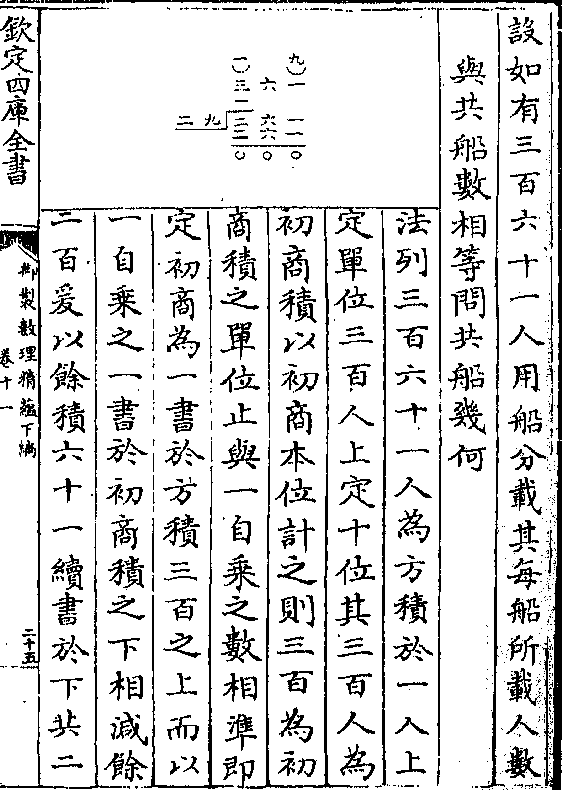 設如有三百六十一人用船分載其每船所載人數
與共船數相等問共船幾何
九)一 一一〇
六 六六〇
一)三二三二〇
九
二
法列三百六十一人為方積於一人上
定單位三百人上定十位其三百人為
初商積以初商本位計之則三百為初
商積之單位止與一自乘之數相準即
定初商為一書於方積三百之上而以
一自乘之一書於初商積之下相減餘
二百爰以餘積六十一續書於下共二
欽定四庫全書
御製數理精蘊下編
卷十一
二十五